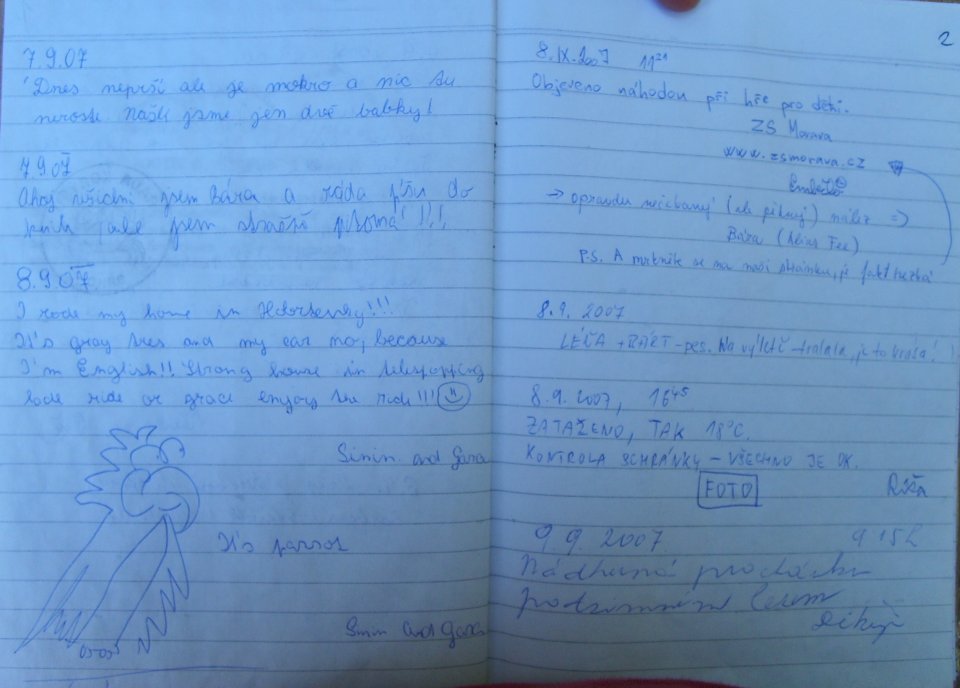 7.9.07
Dnes neprší ale je mokro a nic tu
neroste Našli jsme jen dvě babky!
7.9.07
Ahoj všichni jsem Bára a ráda píšu do
jsem strašně !!!
8.9.07
I rode my home in !!!
It's gray and my car no, because
I'm English!! Strong house in
ride or grace enjoy the ride!!!
Simin and Gara
It's parrot
Simin and Gara
2
8.IX.2007 11 21
Objeveno náhodou při hře pro děti.
ZS Morava
www.zsmorava.cz
=> opravdu nečekaný (ale pěkný) nález =>
Bára (Alias Fee)
P.S. A mrkněte se na naši stránku, je fakt hezká
8.9. 2007
- pes. Na výletě - tralala, je to krása!
8.9.2007, 16 45
ZATAŽENO, TAK 18°C.
KONTROLA SCHRÁNKY - VŠECHNO JE OK.
FOTO
Růža
9.9. 2007 9 15 h
Nádherná procházka
podzimním lesem
Děkuji